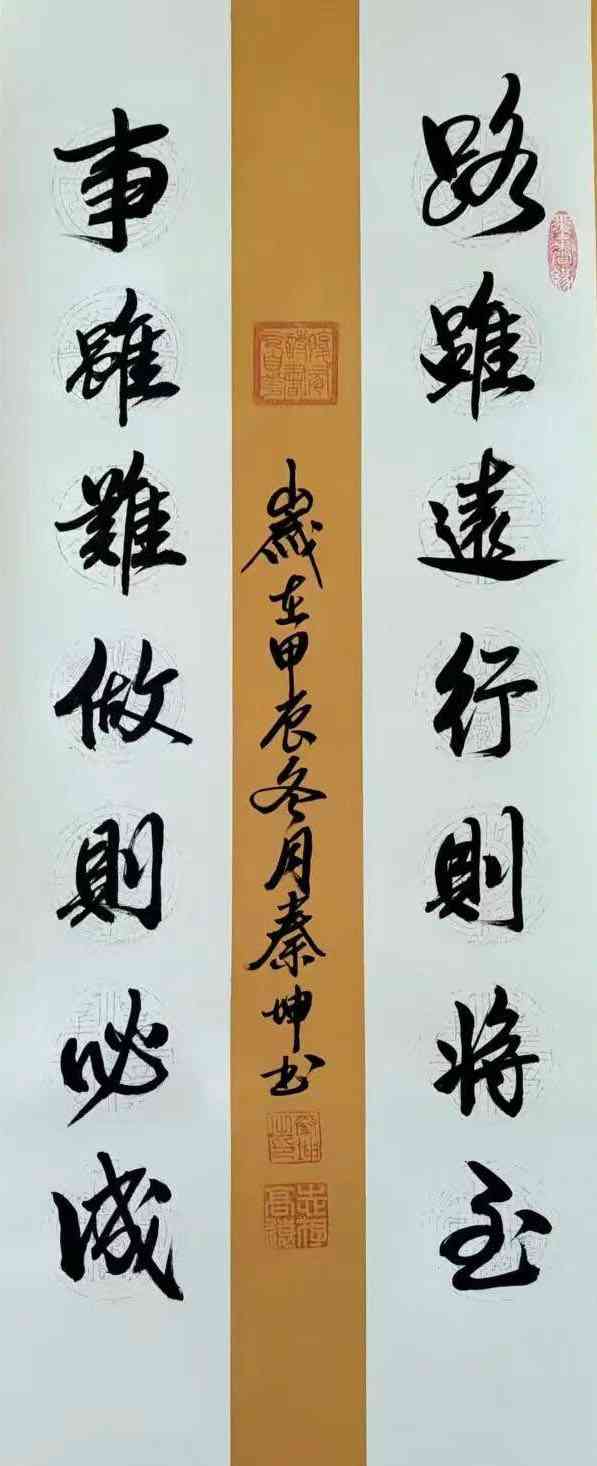 路雖遠行則将至
事雖難做則必成
歲在甲辰冬月秦坤书